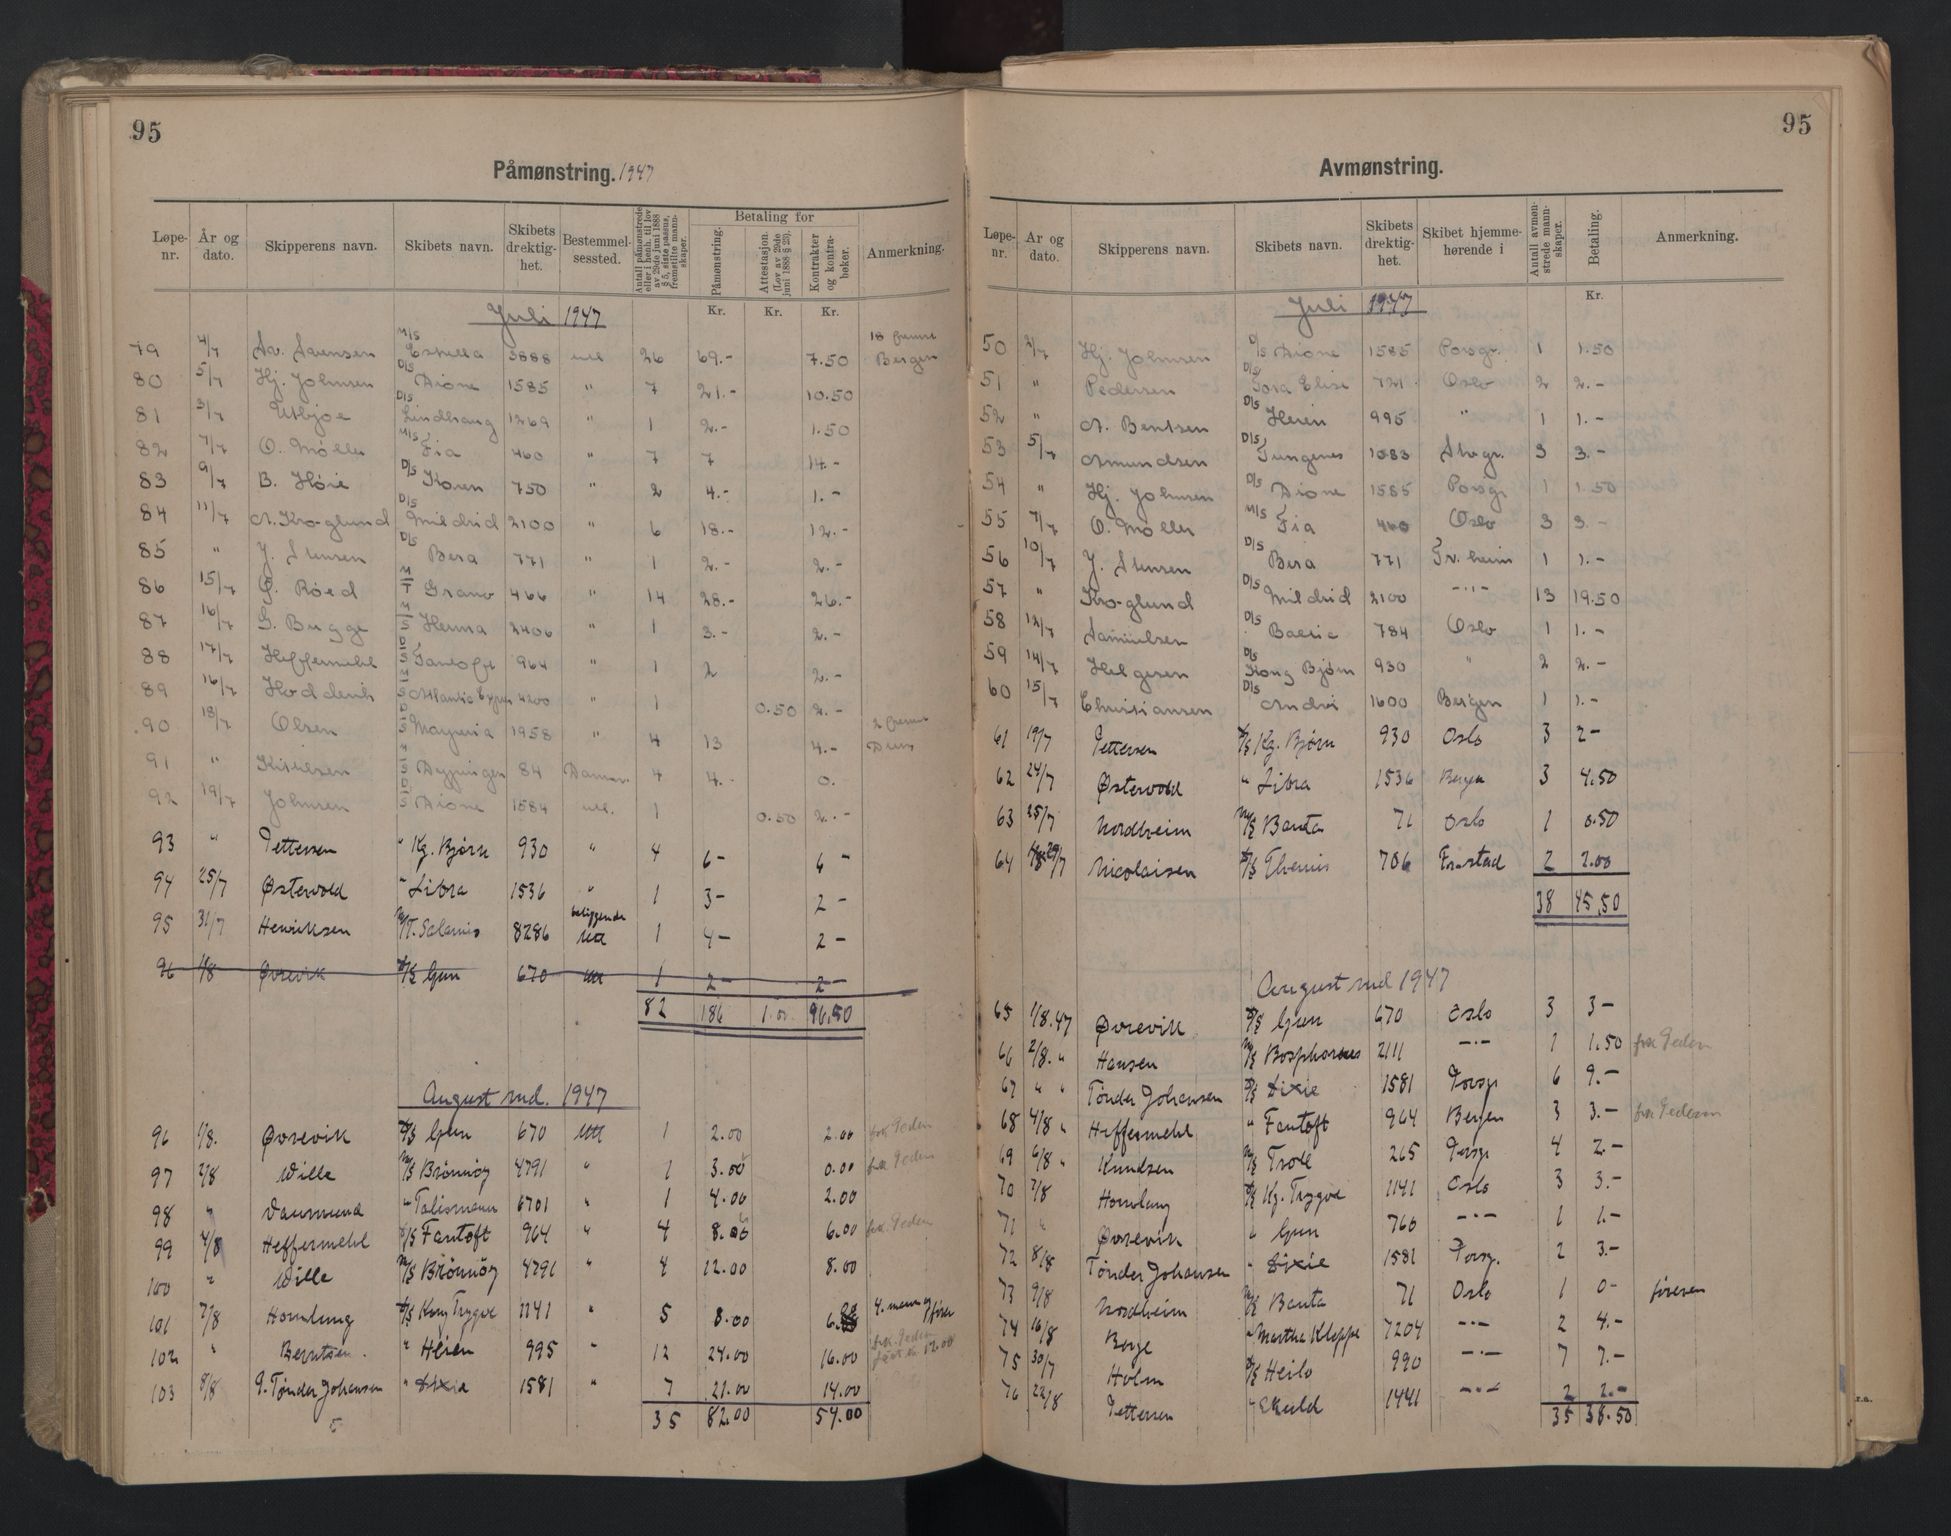 95
Påmønstring. 1947
Løpe-nr. År og dato. Skipperens navn. Skibets navn. Skibets drektig-het. Bestemmel-sessted. Antall påmønstrede eller i henh. til lov av 29de juni 1888 § 5, siste passus, fremstillte mann-skaper. Betaling for Påmønstring. Attestasjon. (Lov av 29de juni 1888 § 25). Kontrakter og kontra-bøker. Anmerkning.
Kr. Kr. Kr.
Juli 1947
79 4/7 Sv. Svensen M/S Estrella 3888 utl 26 69.- 7.50 18 fremst Bergen
80 5/7 Hj. Johnsen D/S Dione 1585 " 7 21.- 10.50
81 3/7 Utbjoe D/S Lindhaug 1269 " 1 2.- 1.50
82 7/7 O. Møller M/S Fia 460 " 7 7 14.-
83 9/7 B. Høie D/S Koren 750 " 2 4.- 1.-
84 11/7 A. Kroglund D/S Mildrid 2100 " 6 18.- 12.-
85 " J. Stensen D/S Bera 771 " 1 2.- 2.-
86 15/7 Røed M/T Grano 466 " 14 28.- 26.-
87 16/7 G. Bugge M/S Herma 2406 " 1 3.- 2.-
88 17/7 Heffermehl D/S Fantoft 964 " 1 2 2.-
89 16/7 Hoddevik M/S Atlantic 4200 " 1 0.50 2.-
90 18/7 Olsen D/S 1958 " 4 13 4.- 2 fremst
91 " Kittilsen M/S Dyppingen 84 Danm. 4 4.- 0.
92 19/7 Johnsen D/S Dione 1584 utl. 1 0.50 2.-
93 " Pettersen " Kg. Bjørn 930 " 4 6- 6-
94 25/7 Østervold " Libra 1536 " 1 3- 2-
95 31/7 Henriksen M/T. Salamis 8286 beliggende Utl 1 4- 2-
96 1/8 Øvrevik D/S Gun 670 Utl 1 2- 2-
82 186 1.00 96,50
August md. 1947
96 1/8. Øvrevik D/S Gun 670 Utl 1 2.00 2.00 fra Peder
97 2/8 Wille M/S Brønnøy 4791 " 1 3.00 0.00 fra Peder
98 " Vaumund " Talismann 6701 " 1 4.00 2.00
99 4/8 Heffermehl D/S Fantoft 964 " 4 8.00 6.00 fra Peder
100 " Wille M/S Brønnøy 4791 " 4 12.00 8.00
101 7/8 Homlung D/S Kong Trygve 1141 " 5 8.00 6. 4. mann og fører
102 " Berntsen. " Heien 995 " 12 24.00 16.00 fra Peder 12.00
103 8/8 P. Tønder Johansen " Dixie 1581 " 7 21.00 14.00
35 82.00 54.00
95
Avmønstring.
Løpe-nr. År og dato. Skipperens navn. Skibets navn. Skibets drektig-het. Skibet hjemme-hørende i Antall avmøn-strede mann-skaper. Betaling. Anmerkning.
Kr.
Juli 1947
50 2/7 Hj. Johnsen D/S Dione 1585 Porsgr. 1 1.50
51 " Pedersen D/S Tora Elise 721 Oslo 2 2.-
52 " A. Bentsen D/S Heien 995 " 1 1.-
53 5/7 Amundsen D/S Tungenes 1083 Stvgr. 3 3.-
54 " Hj. Johnsen D/S Dione 1585 Porsgr 1 1.50
55 7/7 O. Møller M/S Fia 460 Oslo 3 3.-
56 10/7 J. Stensen D/S Bera 771 Tr. heim 1 1.-
57 " Kroglund D/S Mildrid 2100 -"- 13 19.50
58 12/7 Samuelsen D/S Balzic 784 Oslo 1 1.-
59 14/7 Helgesen D/S Kong Bjørn 930 " 2 2.-
60 15/7 Christiansen D/S Andri 1600 Bergen 1 1.-
61 19/7 Pettersen D/S Kg. Bjørn 930 Oslo 3 2-
62 24/7 Østervold " Libra 1536 Bergen 3 4.50
63 25/7 Nordheim M/S Banta 71 Oslo 1 0.50
64 29/7 Nicolaisen D/S Themis 706 Fr.stad 2 2.00
38 45,50
August md 1947
65 1/8.47 Øvrevik D/S Gun 670 Oslo 3 3-
66 2/8. " Hansen M/S Bosphorus 2111 -"- 1 1.50 fra Peder
67 " " Tønder Johansen D/S Dixie 1581 Porsgr 6 9.-
68 4/8 " Heffermehl " Fantoft 964 Bergen 3 3.- fra Pedersen
69 6/8 " Knudsen M/S Trold 265 Porsgr 4 2.-
70 7/8 Homlung D/S Kg. Trygve 1141 Oslo 3 3.-
71 " Øvrevik " Gun 760 -"- 1 1.-
72 8/8 Tønder Johansen " Dixie 1581 Porsgr. 2 3.-
73 9/8 Nordheim M/S Banta 71 Oslo 1 0- føreren
74 16/8 Borge " Martha Kleppe 7204 -"- 2 4.-
75 30/7 Holm D/S Heilo 990 -"- 7 7.-
76 22/8 Pettersen " Skuld 1441 -"- 2 2.-
35 38.50